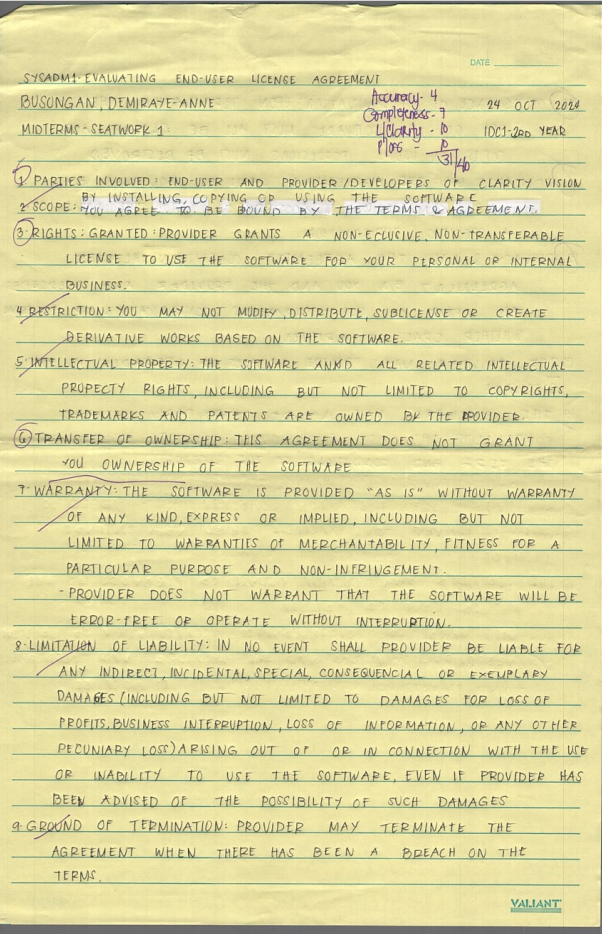 DATE
SYSADM1-EVALUATING END-USER LICENSE AGREEMENT
BUSONGAN, DEMIRAYE-ANNE 24 OCT 2024
MIDTERMS-SEATWORK 1: IDC1-2RD YEAR
Accuracy- 4
Completeness- 7
Clarity - 10
- 10
31/40
1 PARTIES INVOLVED: END-USER AND PROVIDER/DEVELOPERS OF CLARITY VISION
2 SCOPE: BY INSTALLING, COPYING OR USING THE SOFTWARE
YOU AGREE TO BE BOUND BY THE TERMS & AGREEMENT.
3 RIGHTS: GRANTED: PROVIDER GRANTS A NON-ECLUSIVE, NON-TRANSFERABLE
LICENSE TO USE THE SOFTWARE FOR YOUR PERSONAL OR INTERNAL
BUSINESS.
4 RESTRICTION: YOU MAY NOT MODIFY, DISTRIBUTE, SUBLICENSE OR CREATE
DERIVATIVE WORKS BASED ON THE SOFTWARE.
5 INTELLECTUAL PROPERTY: THE SOFTWARE AND ALL RELATED INTELLECTUAL
PROPECTY RIGHTS, INCLUDING BUT NOT LIMITED TO COPYRIGHTS,
TRADEMARKS AND PATENTS ARE OWNED BY THE PROVIDER.
6 TRANSFER OF OWNERSHIP: THIS AGREEMENT DOES NOT GRANT
YOU OWNERSHIP OF THE SOFTWARE
7-WARRANTY: THE SOFTWARE IS PROVIDED "AS IS" WITHOUT WARRANTY
OF ANY KIND, EXPRESS OR IMPLIED, INCLUDING BUT NOT
LIMITED TO WARRANTIES OF MERCHANTABILITY, FITNESS FOR A
PARTICULAR PURPOSE AND NON-INFRINGEMENT.
- PROVIDER DOES NOT WARRANT THAT THE SOFTWARE WILL BE
ERROR-FREE OR OPERATE WITHOUT INTERRUPTION.
8-LIMITATION OF LIABILITY: IN NO EVENT SHALL PROVIDER BE LIABLE FOR
ANY INDIRECT, INCIDENTAL, SPECIAL, CONSEQUENCIAL OR EXEMPLARY
DAMAGES (INCLUDING BUT NOT LIMITED TO DAMAGES FOR LOSS OF
PROFITS, BUSINESS INTERRUPTION, LOSS OF INFORMATION, OR ANY OTHER
PECUNIARY LOSS) ARISING OUT OF OR IN CONNECTION WITH THE USE
OR INABILITY TO USE THE SOFTWARE, EVEN IF PROVIDER HAS
BEEN ADVISED OF THE POSSIBILITY OF SUCH DAMAGES
9-GROUND OF TERMINATION: PROVIDER MAY TERMINATE THE
AGREEMENT WHEN THERE HAS BEEN A BREACH ON THE
TERMS.
VALIANT